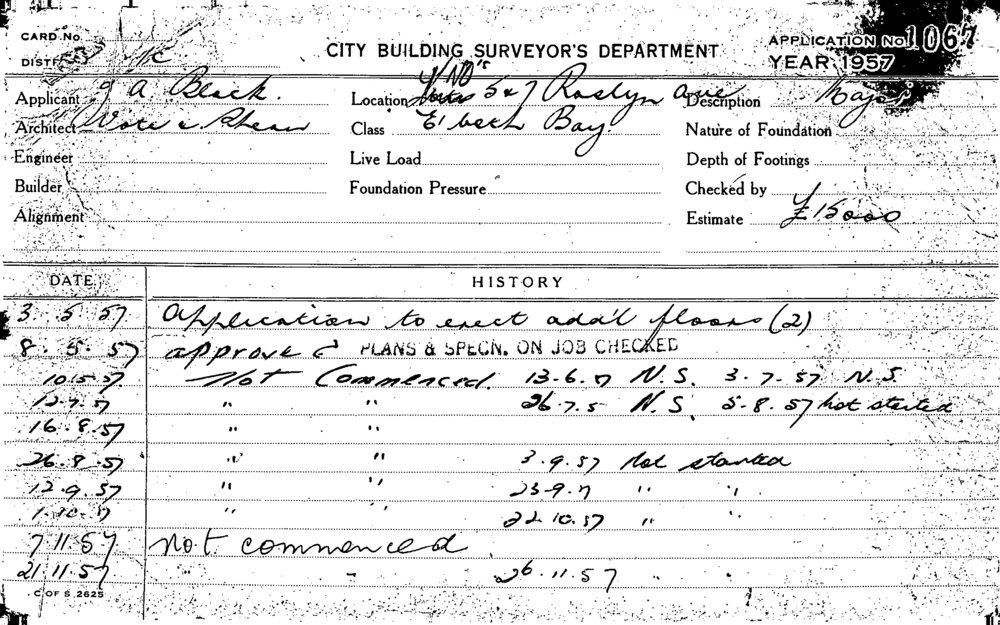 CARD No.
CITY BUILDING SURVEYOR'S DEPARTMENT
APPLICATION No. 1067
DIST
YEAR 1957
Applicant J A Black. Location No's 5 & 7 Roslyn Ave Description Major
Architect Class E'beth Bay Nature of Foundation
Engineer Live Load Depth of Footings
Builder Foundation Pressure Checked by
Alignment Estimate £15000
DATE HISTORY
3.5.57 Application to erect add'l floors (2)
8.5.57 approved PLANS & SPECN. ON JOB CHECKED
10.5.57 Not Commenced. 13-6.57 N.S. 3.7.57 N.S.
12.7.57 " " 26.7.5 N.S. 5.8.57 not started
16.8.57 " "
26.8.57 " " 3.9.57 Not started
12.9.57 " " 23-9.57 " "
1.10.57 " " 22.10.57 " "
7.11.57 not commenced
21.11.57 " 26.11.57 " "
C OF S 2625